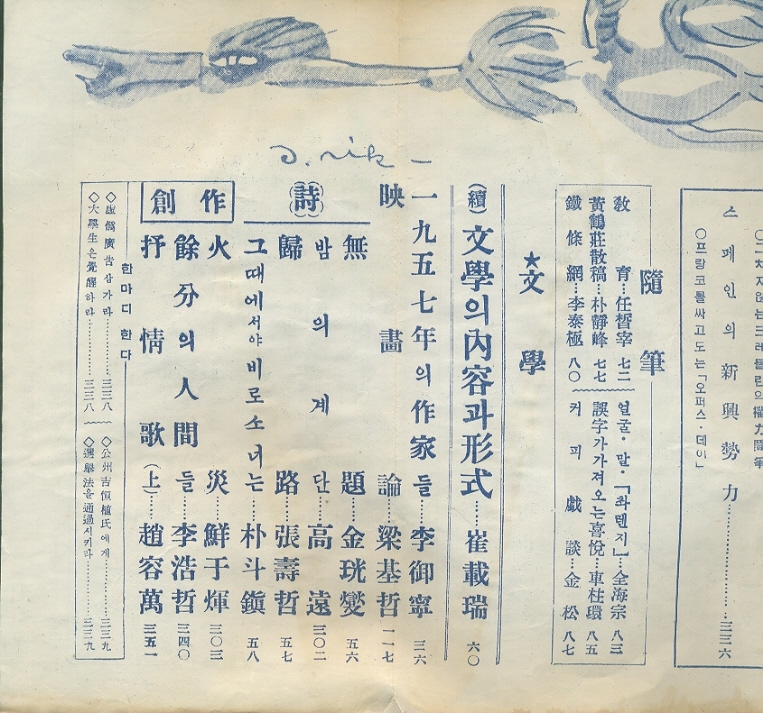 스페인의 新興勢力……三三六
○프랑코를싸고도는「오퍼스·데이」
隨筆
敎育…任晳宰 七二
黃鶴莊散稿…朴靜峰 七七
鐵條網…李泰極 八〇
얼굴·말·「촤텐지」…全海宗 八三
誤字가가져오는喜悅…車柱環 八五
커피戱談…金松 八七
★文學
(續)文學의內容과形式……崔載瑞 六〇
一九五七年의作家들…李御寧 三六
映畫論…梁基哲 一一七
(詩)
無題…金珖燮 五六
밤의계단…高遠 三〇二
歸路…張壽哲 五七
그때에서야비로소너는…朴斗鎭 五八
創作
火災…鮮于煇 三〇三
餘分의人間들…李浩哲 三四〇
抒情歌(上)…趙容萬 三五一
한마디한다
◇虛僞廣告삼가라……三三八
◇公州吉恒植氏에게……三三九
◇大學生은覺醒하라……三三八
◇選擧法을通過시키라……三三九
D.nik —